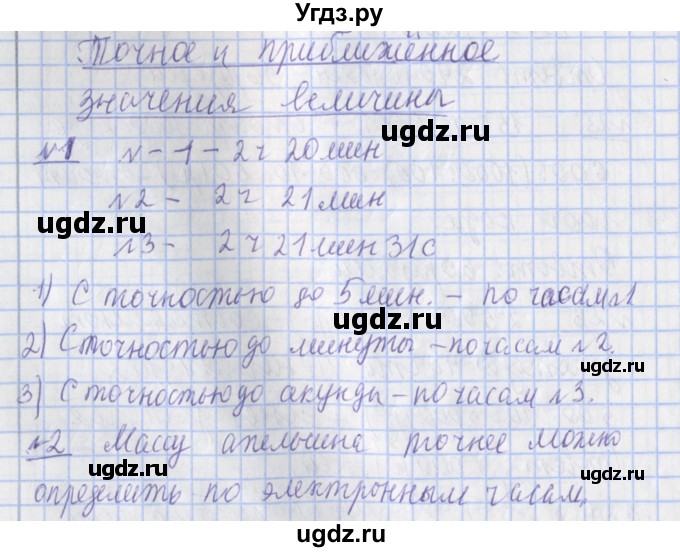 Угдз.ру
Точное и приближённое
значения величины
ugdz.ru
№1 № - 1 - 2 ч 20 мин
ugdz.ru
№2 - 2 ч 21 мин
ugdz.ru
№3 - 2 ч 21 мин 31 с
ugdz.ru
1) С точностью до 5 мин. - по часам №1
ugdz.ru
2) С точностью до минуты - по часам №2.
ugdz.ru
3) С точностью до акунды - по часам №3.
ugdz.ru
№2 Массу апельсина точнее можно
ugdz.ru
определить по электронным часам,
ugdz.ru
Угдз.ру